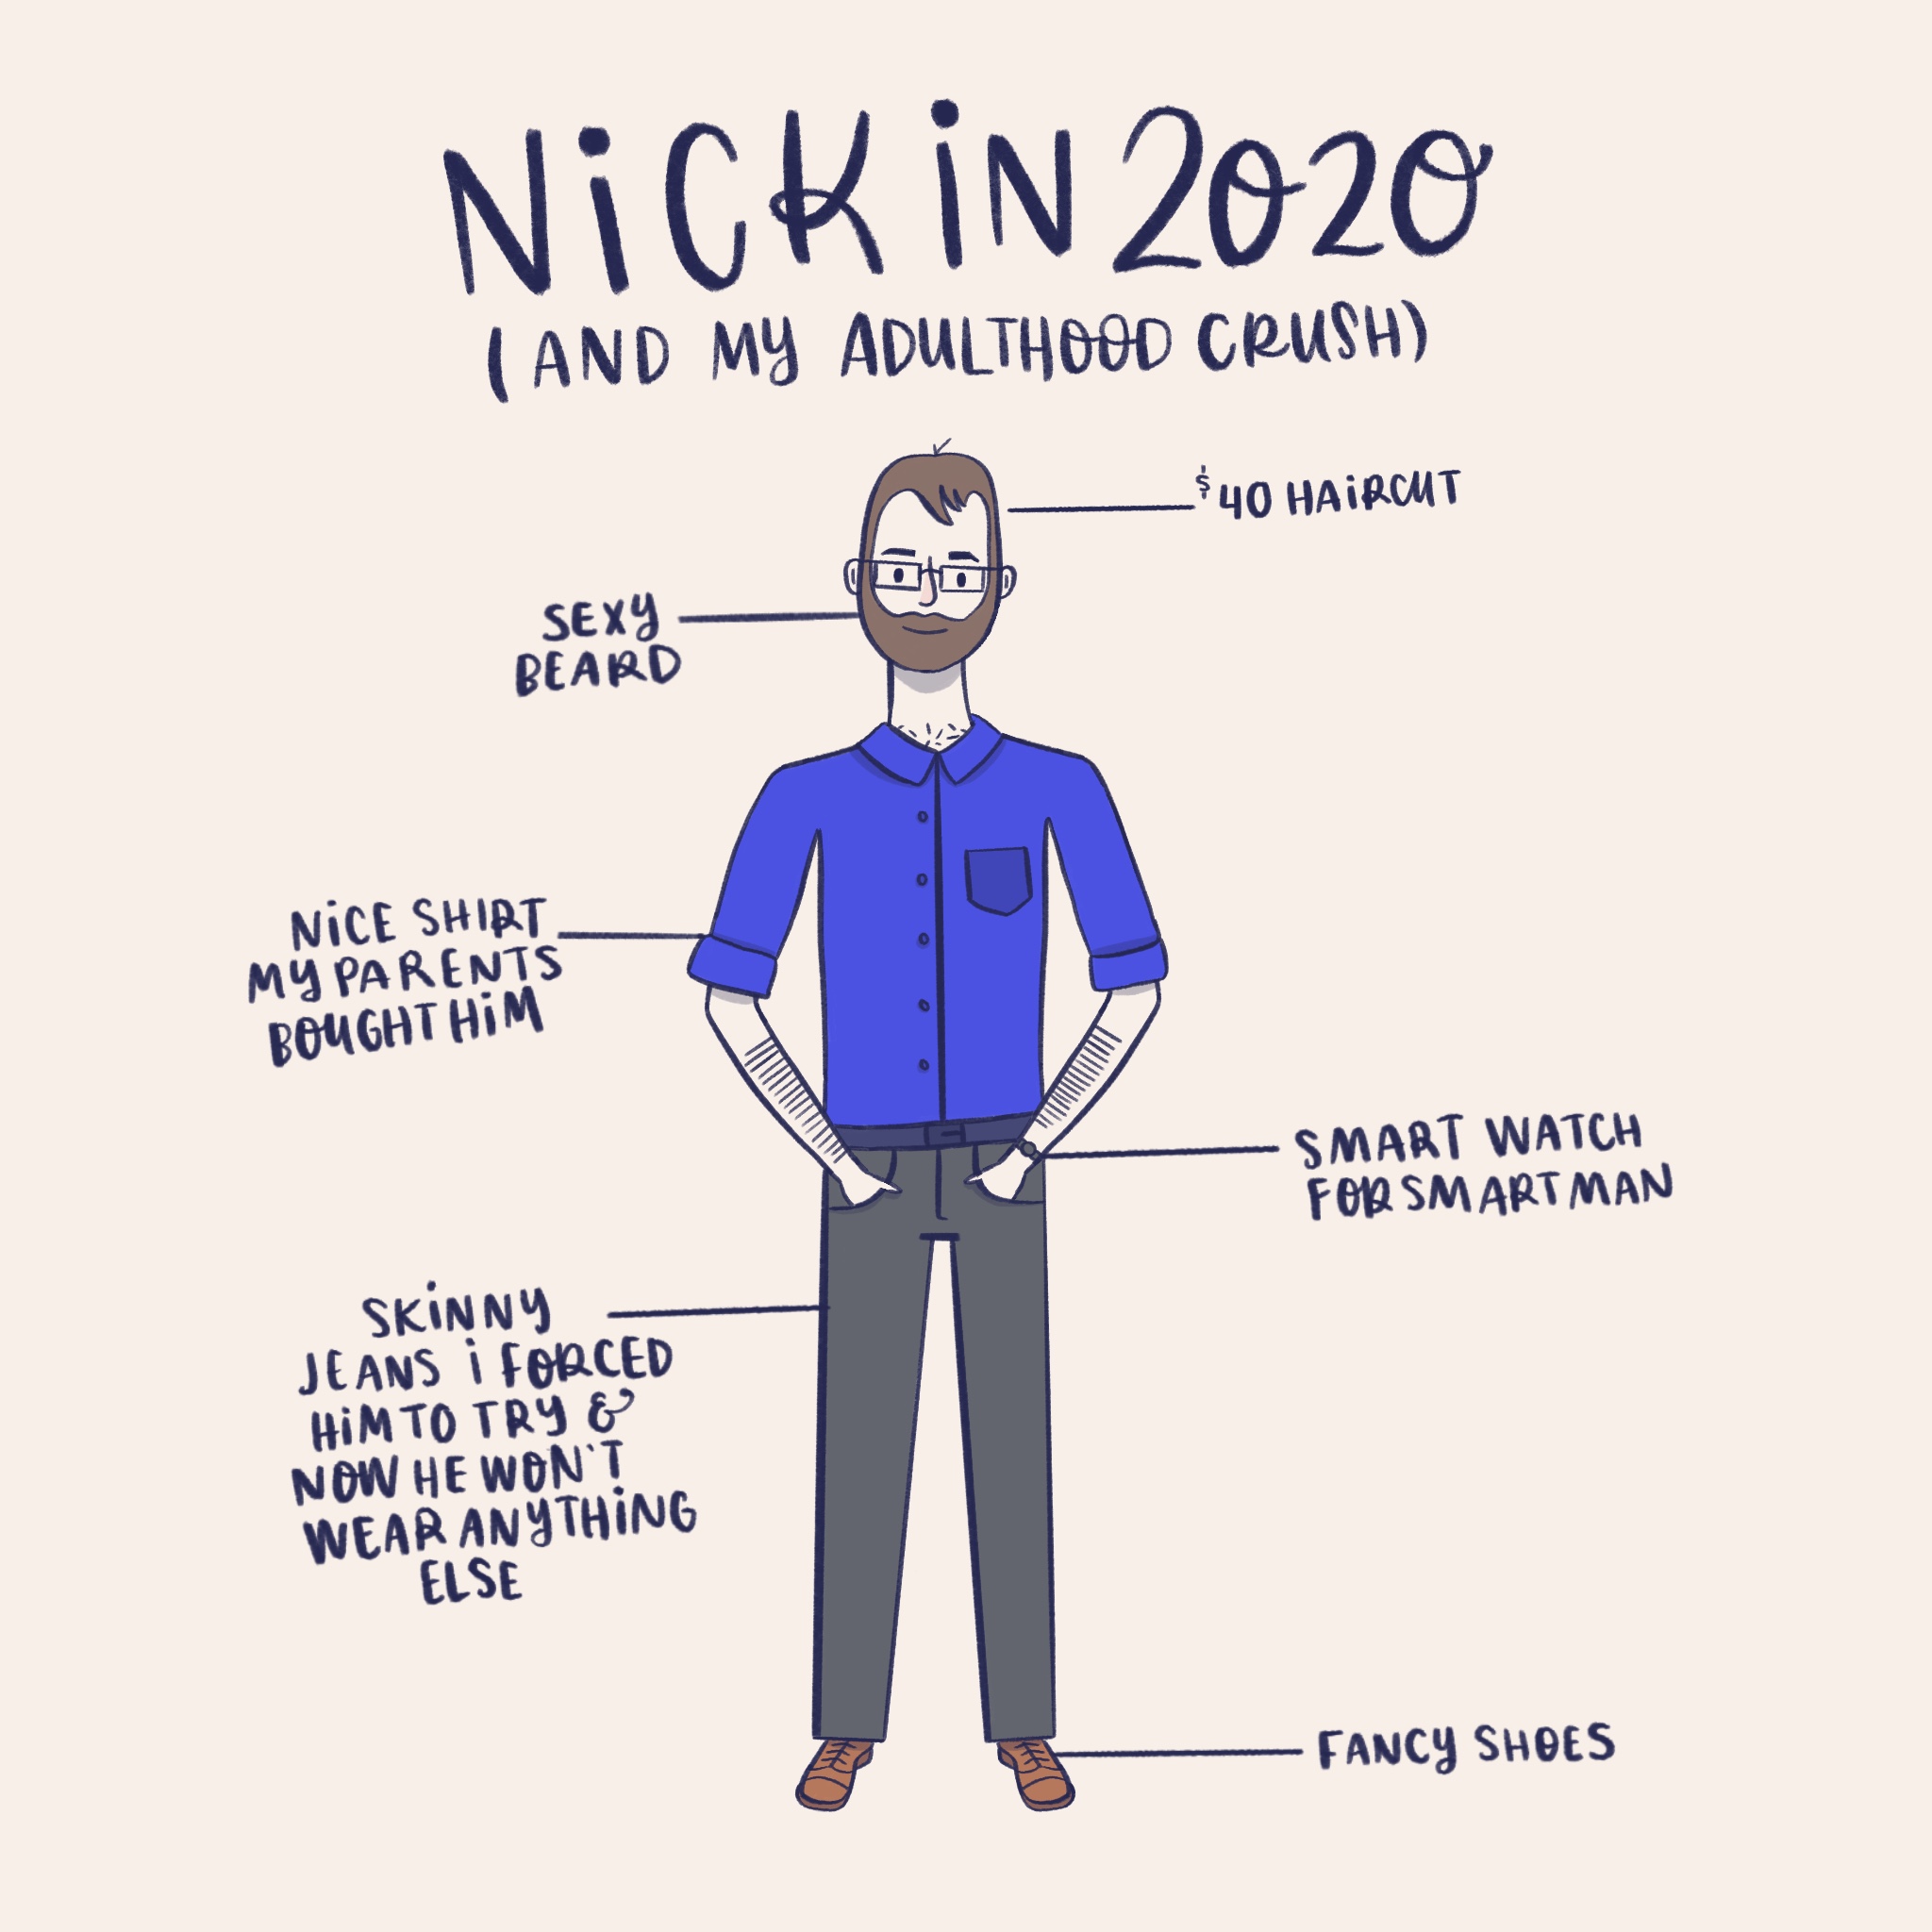 NiCK iN 2020
(AND MY ADULTHOOD CRUSH)
$40 HAiRCUT
SEXY
BEARD
NiCE SHIRT
MY PARENTS
BOUGHT HiM
SMART WATCH
FOR SMART MAN
SKiNNY
JEANS i FORCED
HiM TO TRY &
NOW HE WON'T
WEAR ANYTHiNG
ELSE
FANCY SHOES